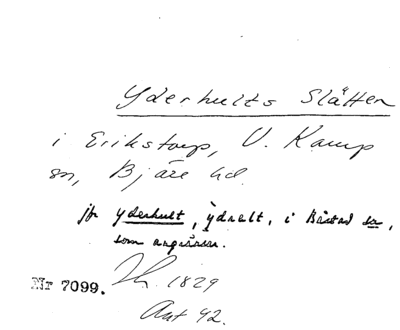 Yderhults Slätten
i Erikstorp, V. Karup
sn, Bjäre hd.
jfr Yderhult, ydaelt, i Båstad sn,
som angränsar.
1829
Nr 7099.
Akt 42.